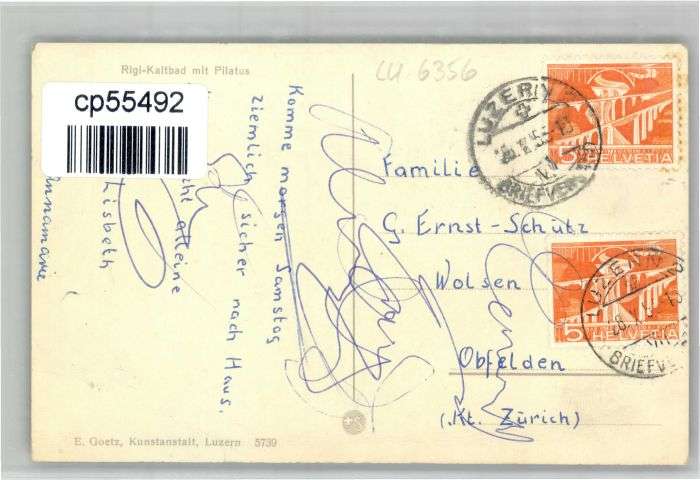 Rigi-Kaltbad mit Pilatus
CU 6356
cp55492
Komme morgen Samstag
ziemlich sicher nach Haus.
alleine
Lisbeth
Annamarie
Familie
G. Ernst-Schütz
Wolsen
Obfelden
(Kt. Zürich)
LUZERN
BRIEFVERS
5 HELVETIA
LUZERN
BRIEFV
5 HELVETIA
E. Goetz, Kunstanstalt, Luzern 5739